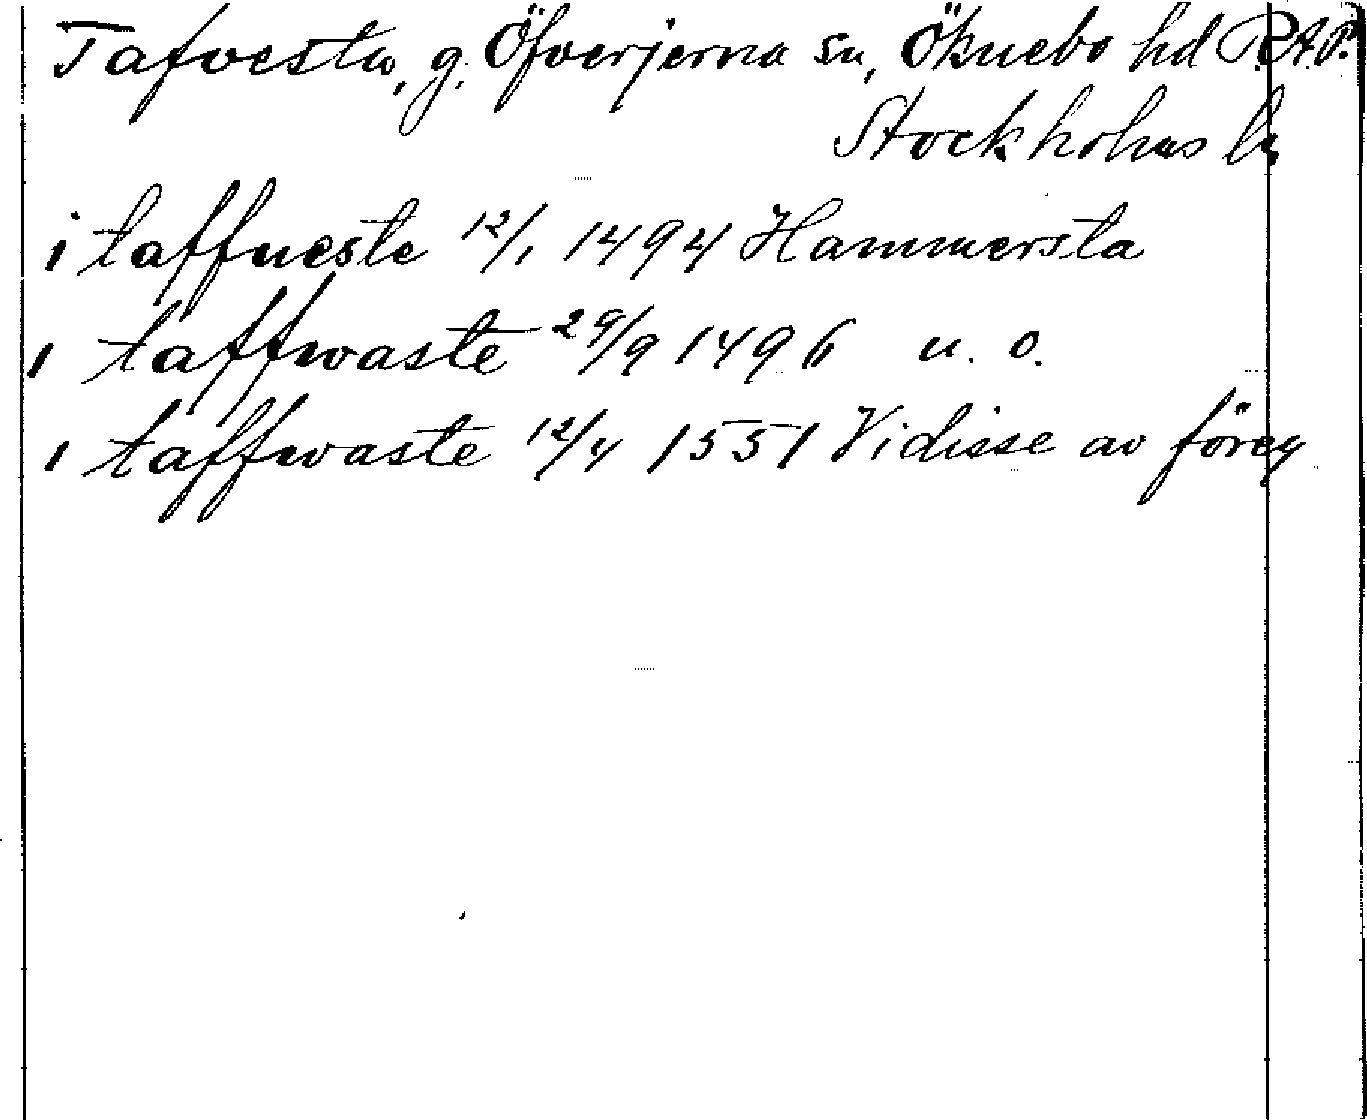 Tafvesta, g. Öfverjerna sn, Öknebo hd R.A.P.
Stockholms ln
i taffueste 12/1 1494 Hammersta
i taffwaste 29/9 1496 u. o.
i taffwaste 12/4 1551 Vidisse av föreg